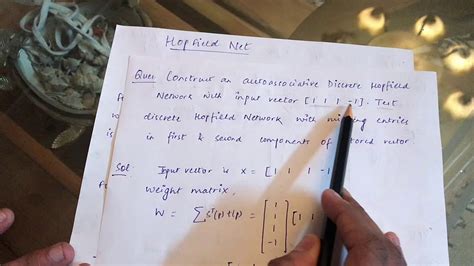 Hopfield Net
Que: Construct an autoassociative Discrete Hopfield
Network with input vector [1 1 1 -1]. Test
discrete Hopfield Network with missing entries
in first & second components of stored vector
Sol: Input vector is x = [1 1 1 -1
weight matrix,
W = ∑ sᵀ(p) t(p) = [1 1
1
1
-1]